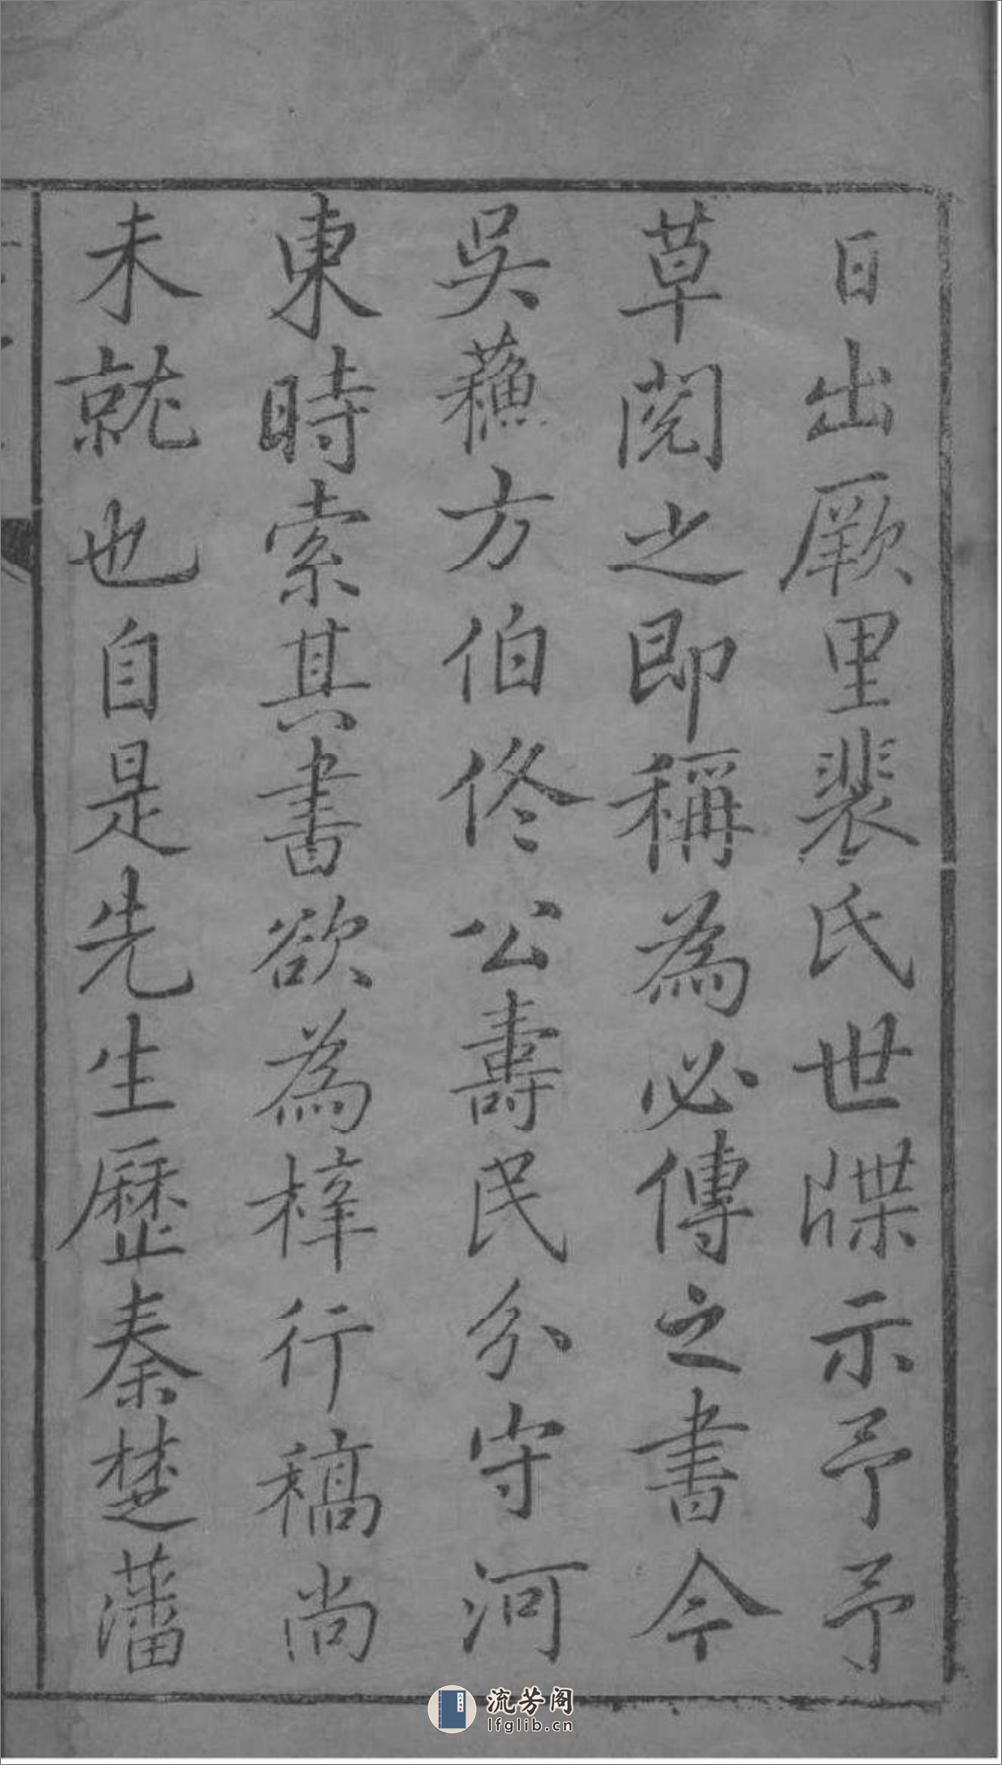 日出厥里裴氏世牒示予予
草閱之即稱為必傳之書今
吳蘓方伯佟公壽民分守河
東時索其書欲為梓行稿尚
未就也自是先生歷秦楚藩
流芳阁
lfglib.cn